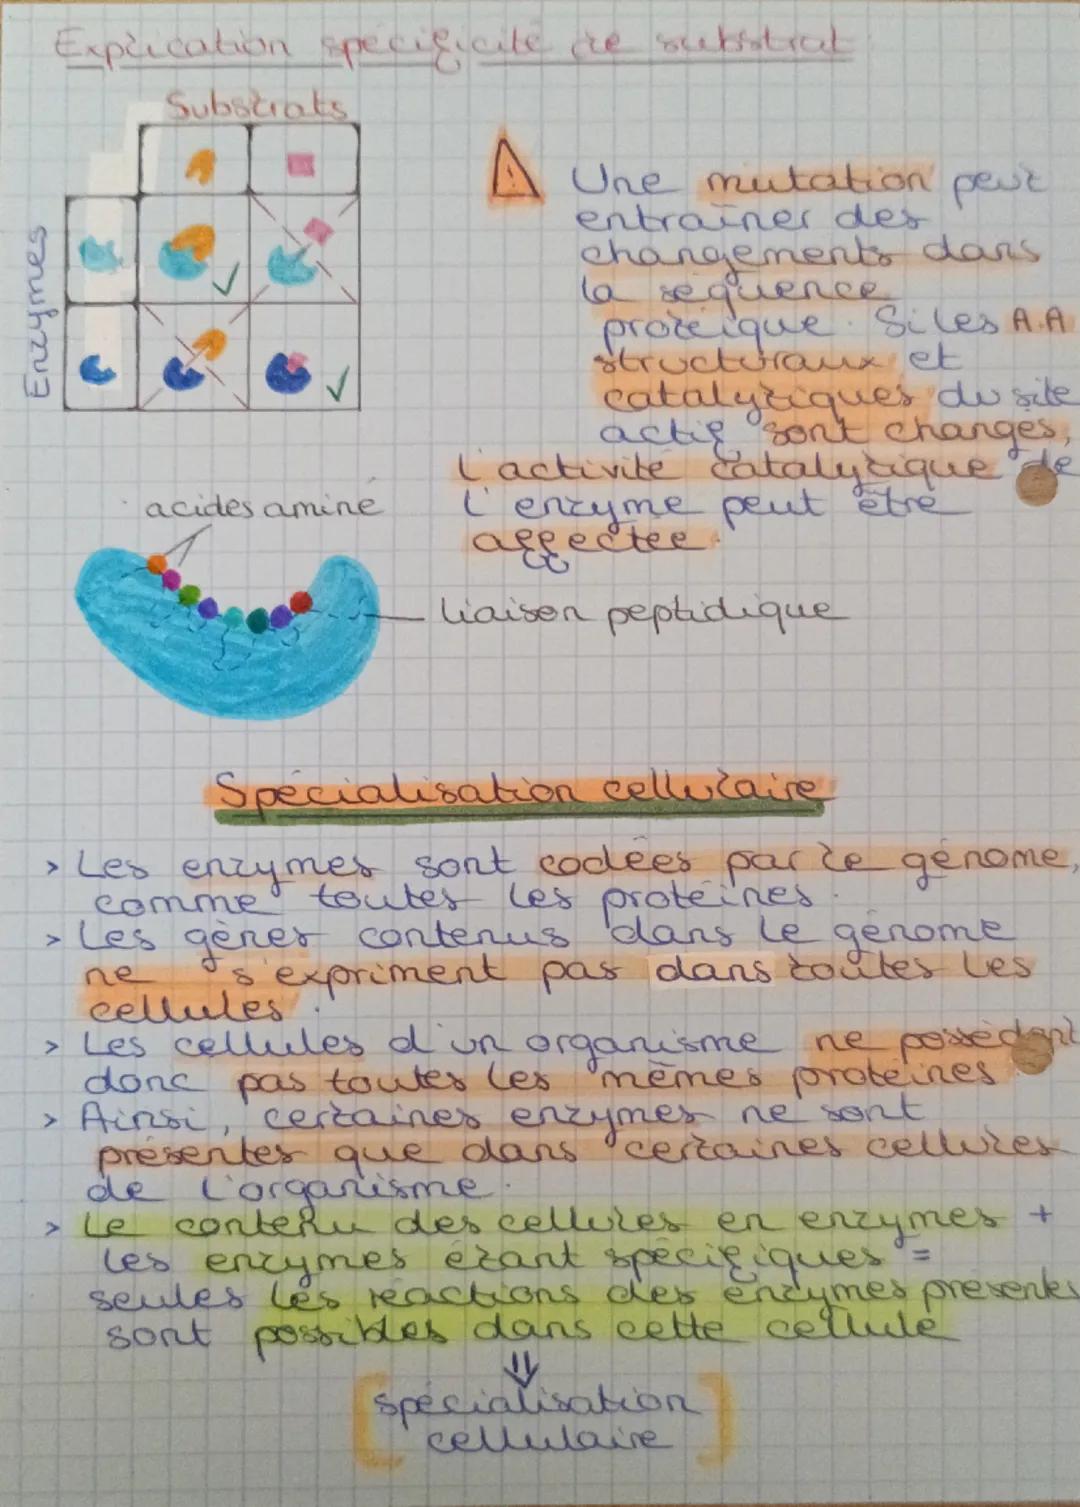 Explication spécificité de substrat
Substrats
Enzymes
Une mutation peut
entraîner des
changements dans
la séquence
protéique. Si les A.A
structuraux et
catalytiques du site
actif sont changés,
l'activité catalytique de
l'enzyme peut être
affectée.
acides aminé
liaison peptidique
Spécialisation cellulaire
> Les enzymes sont codées par le génome,
comme toutes les protéines.
> Les gènes contenus dans le génome
ne s'expriment pas dans toutes les
cellules.
> Les cellules d'un organisme ne possèdent
donc pas toutes les mêmes protéines
> Ainsi, certaines enzymes ne sont
présentes que dans certaines cellules
de l'organisme.
> Le contenu des cellules en enzymes +
les enzymes étant spécifiques =
seules les réactions des enzymes présentes
sont possibles dans cette cellule
⇓
[spécialisation
cellulaire]